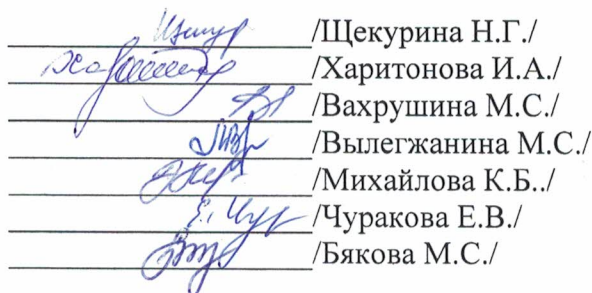 /Щекурина Н.Г./
/Харитонова И.А./
/Вахрушина М.С./
/Вылегжанина М.С./
/Михайлова К.Б../
/Чуракова Е.В./
/Бякова М.С./